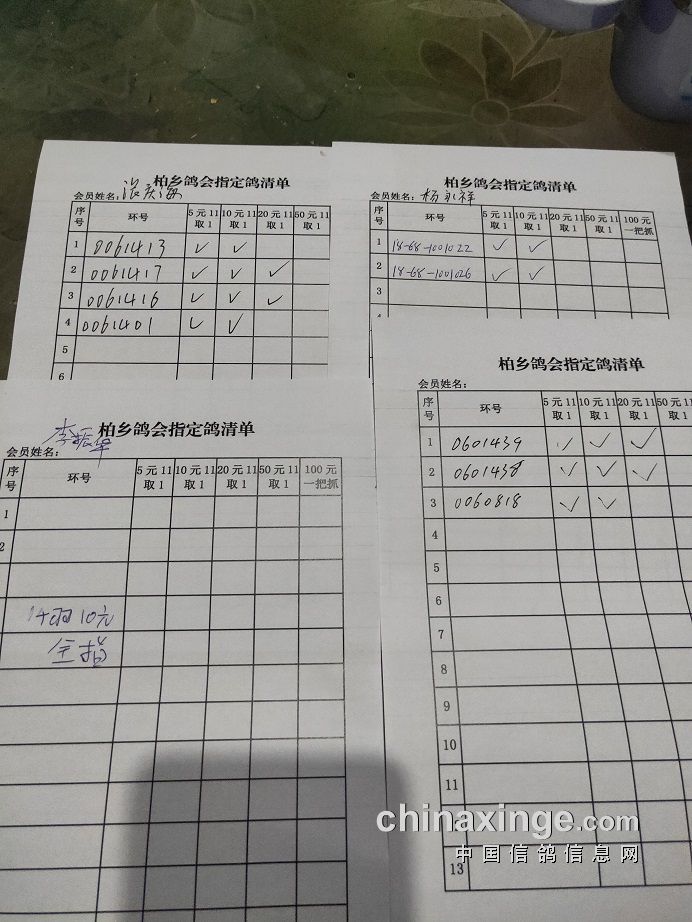 柏乡鸽会指定鸽清单
会员姓名：
序号 环号 5元11取1 10元11取1 20元11取1 50元11取1
1 0061413 ✓ ✓
2 0061417 ✓ ✓ ✓
3 0061416 ✓ ✓ ✓
4 0061401 ✓ ✓
5
6
柏乡鸽会指定鸽清单
会员姓名：杨永祥
序号 环号 5元11取1 10元11取1 20元11取1 50元11取1 100元一把抓
1 18-68-1001022 ✓ ✓
2 18-68-1001026 ✓ ✓
3
柏乡鸽会指定鸽清单
会员姓名：李振华
序号 环号 5元11取1 10元11取1 20元11取1 50元11取1 100元一把抓
1
2
14羽10元
全指
柏乡鸽会指定鸽清单
会员姓名：
序号 环号 5元11取1 10元11取1 20元11取1 50元11取1
1 0601439 ✓ ✓ ✓
2 0601438 ✓ ✓ ✓
3 0060818 ✓ ✓
4
5
6
7
8
9
10
11
13
chinaxinge.com
中国信鸽信息网